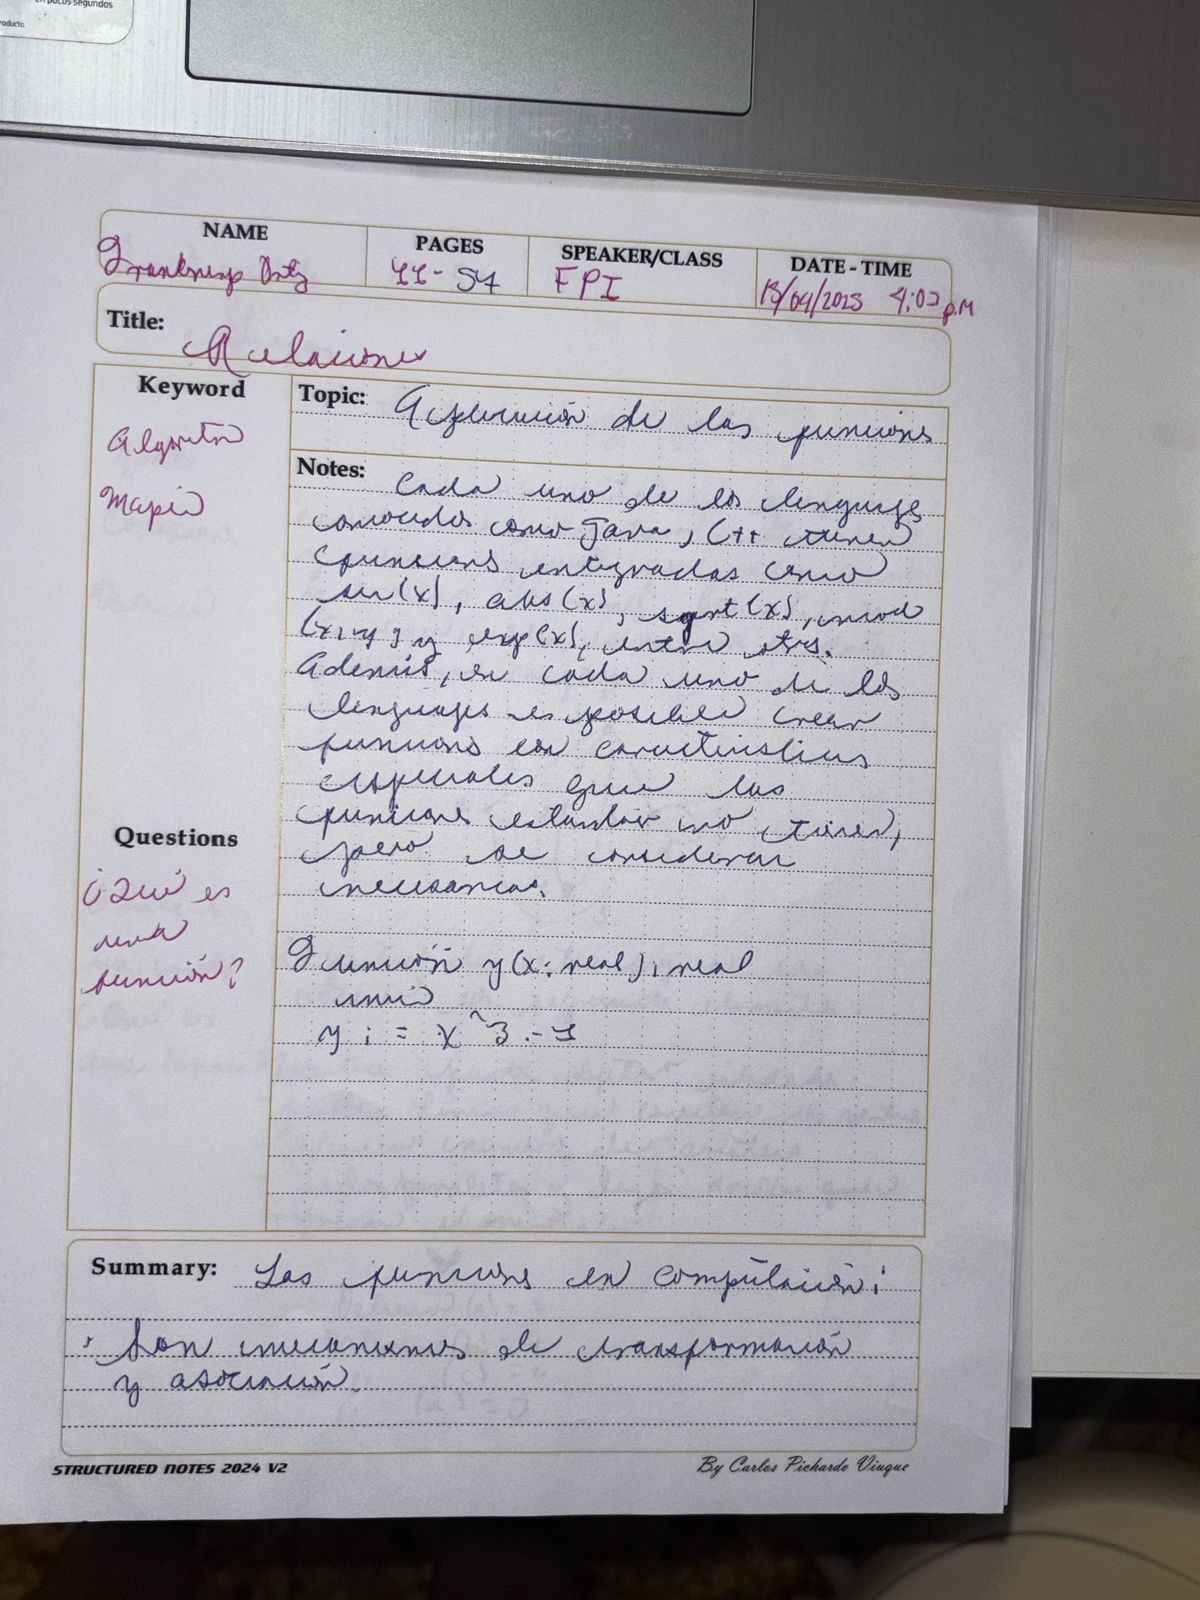 en pocos segundos
producto.
NAME
PAGES
SPEAKER/CLASS
DATE - TIME
FPI
13/04/2025 4:02 p.M
Title:
Relaciones
Keyword
Topic:
de las funciones
Algoritm
Notes:
Cada uno de los lenguajes
Mapeo
conocidos como Java, C++ tienen
funciones integradas como
sen(x), abs(x), sqrt(x), mod
(x,y) y exp(x), entre otrs.
Además, en cada uno de los
lenguajes es posible crear
funciones con características
especiales que las
funciones estandar no tienen,
pero se consideran
necesarias.
Questions
¿Qué es
una
función?
Función y(x: real): real
inicio
y := x^3 -
Summary:
Las funciones en computación:
Son mecanismos de transformación
y asociación.
STRUCTURED NOTES 2024 V2
By Carlos Pichardo Viuque